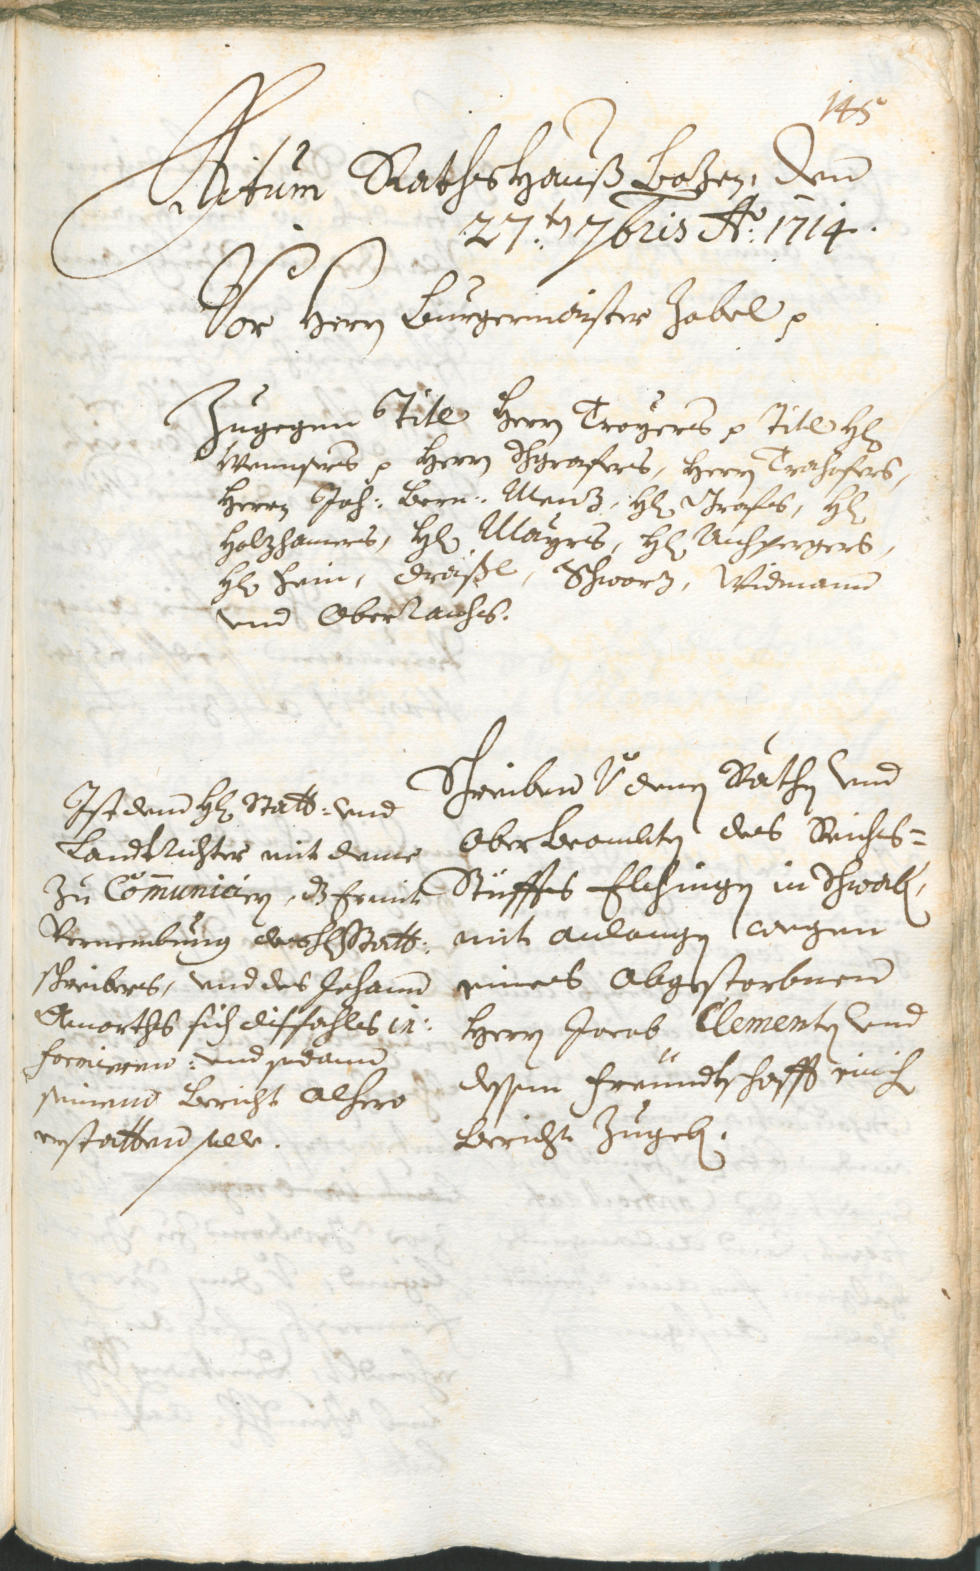 145
Actum Rathshauß Bozen, den
27:ten 7bris Ao: 1714.
Vor Herrn Burgermaister Zobel p
Zugegen Title Herrn Troyers p Title Hl
Wenisers p Herrn Ihgrafens, Herrn Trahofers,
Herrn Joh: Bern: Menz, Hl Grafes, Hl
Holzhamers, Hl Mayrs, Hl Aichpergers,
Hl hein, dräxl, Schwarz, Widmann
und Oberrauchs.
Schreiben V denen Räthen und
Ober Beambten des Reichs=
Stüffts Elchingen in Schwab,
mit anlangen wegen
eines abgestorbnen
Herrn Jacob Clementi und
dessen freündtschafft einich
Bericht Zugeb.
Ist dem Hl Statt: und
Landtrichter mit deme
Zu Comunicirn, dz Er mit
Vernembung des Hl Statt:
schreibers, und des Johann
Amorths sich diffahls in:
formieren: und sodann
seinen Bericht alhero
erstatten solle.